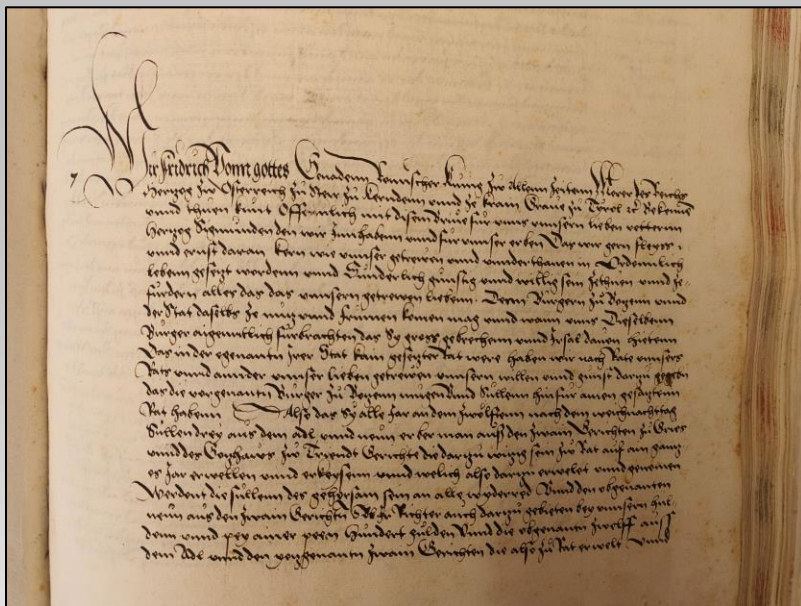 Wir Fridrich Vonn gottes Genadenn Romischer kunig zw Allenn zeitenn Merer des Reichs
Hertzog zw Osterreich zw Steir zw kerndenn vnnd ze krain Graue zw Tyrol etc Bekennen
vnnd thuen kunt Offennlich mit disem brieue fur vnns vnnsern lieben vetternn
Hertzog Sigmunden den wir Innhabenn vnnd fur vnnser erben Das wir gern fleyss
vnnd ernst daran kern wie vnnser getrewen vnnd vnnderthanen in Ordennlich
lebenn gesetzt werdenn vnnd Sunderlich gunstig vnnd willig sein
furdern alles das das vnnsern getrewen lieben Denn Burgern zu Botzenn vnnd
der Stat daselbs ze nutz vnnd frummen komen mag vnnd wann vnns Dieselbenn
Burger aigenntlich furbrachten das Sy gross gebrechenn vnnd Irsal dauon hietenn
Das in der egenantn Irer Stat kain gesetzter Rat were haben wir nach Rate vnnsers
Rats vnnd annder vnnser lieben getrewen vnnsern willen vnnd gunst dartzu gegeben
das die vorgenantn Burger zu Botzenn mugen Vnnd Sullenn hinfur ainen gesatztenn
Rat habenn Also das Sy alle Jar an dem zwelfftenn nach dem weichnachttag
Sullen drey aus dem adl vnnd neun erber man auss den zwain Gerichten zu Gries
vnnd des Gotzhaws zw Triendt Gerichte die dartzu nutzig sein zw Rat auf ain gantz
es Jar erwellen vnnd erkysenn vnnd welich also dartzu erwelet vnnd genomen
Werdent die sullenn des gehorsam sein an alle wyderred Vnnd den obgenanten
neun aus den zwain Gerichtn Sol Ir Richter auch dartzu gebieten bey vnnsern hul
denn vnnd pey ainer peen Hundert gulden Vnnd die obgenantn zwelff auss
dem Adl vnnd den yetzgenantn zwain Gerichten die also zu Rat erwelt vnnd